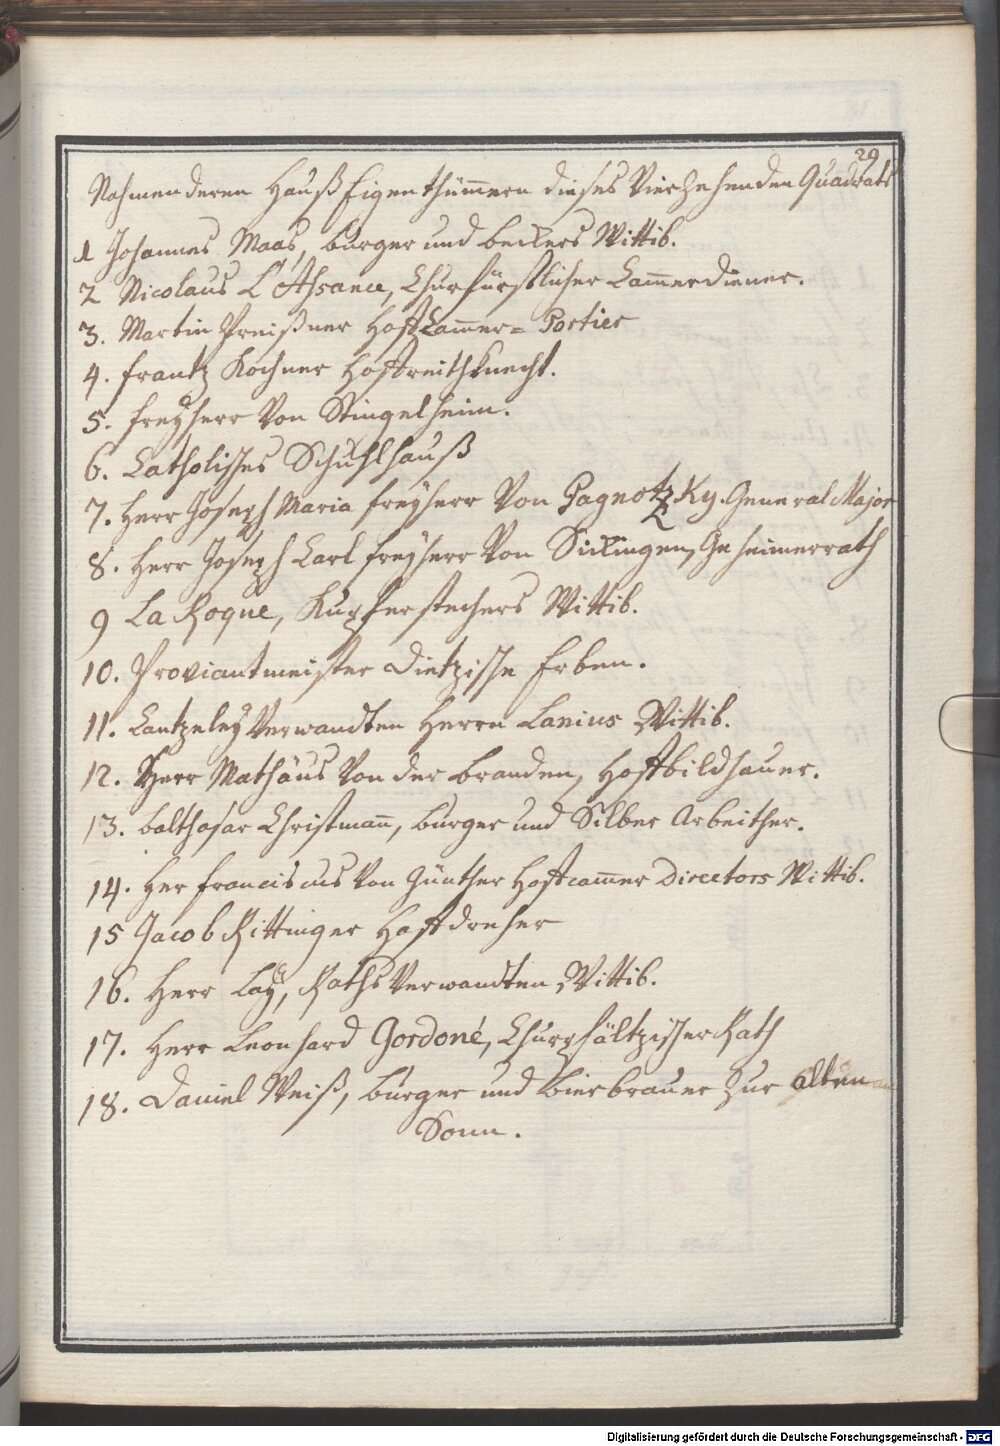 29
Nahmen deren Hauß Eigenthümmern dieses Vierzehenden Quadrats
1 Johannes Maas, burger und beckers Wittib.
2 Nicolaus L'Assance, Churfürstlicher Cammerdiener.
3. Martin Preißner Hoff Cammer= Portier
4. Frantz Kochner Hoffreithknecht.
5. Freyherr Von Stingelheim.
6. Catholisches Schuhlhauß
7. Herr Joseph Maria Freyherr Von Pagnotzky. General Major
8. Herr Joseph Carl Freyherr Von Sickingen, Geheimerrath
9 La Roque, Kupferstechers Wittib.
10. Proviantmeister Dietzische Erben.
11. Cantzeley Verwandten Herrn Lanius Wittib.
12. Herr Mathäus Von der branden, Hoffbildhauer.
13. balthasar Christmann, burger und Silber Arbeither.
14. Her Franciscus Von Günther Hoffcammer Directors Wittib.
15 Jacob Rittinger Hoffdreher
16. Herr Laÿ, Raths Verwandten Wittib.
17. Herr Leonhard Gordoné, Churpfältzischer Rath
18. Daniel Weiß, burger und bierbrauer zur alten
Sonn.
Digitalisierung gefördert durch die Deutsche Forschungsgemeinschaft - DFG